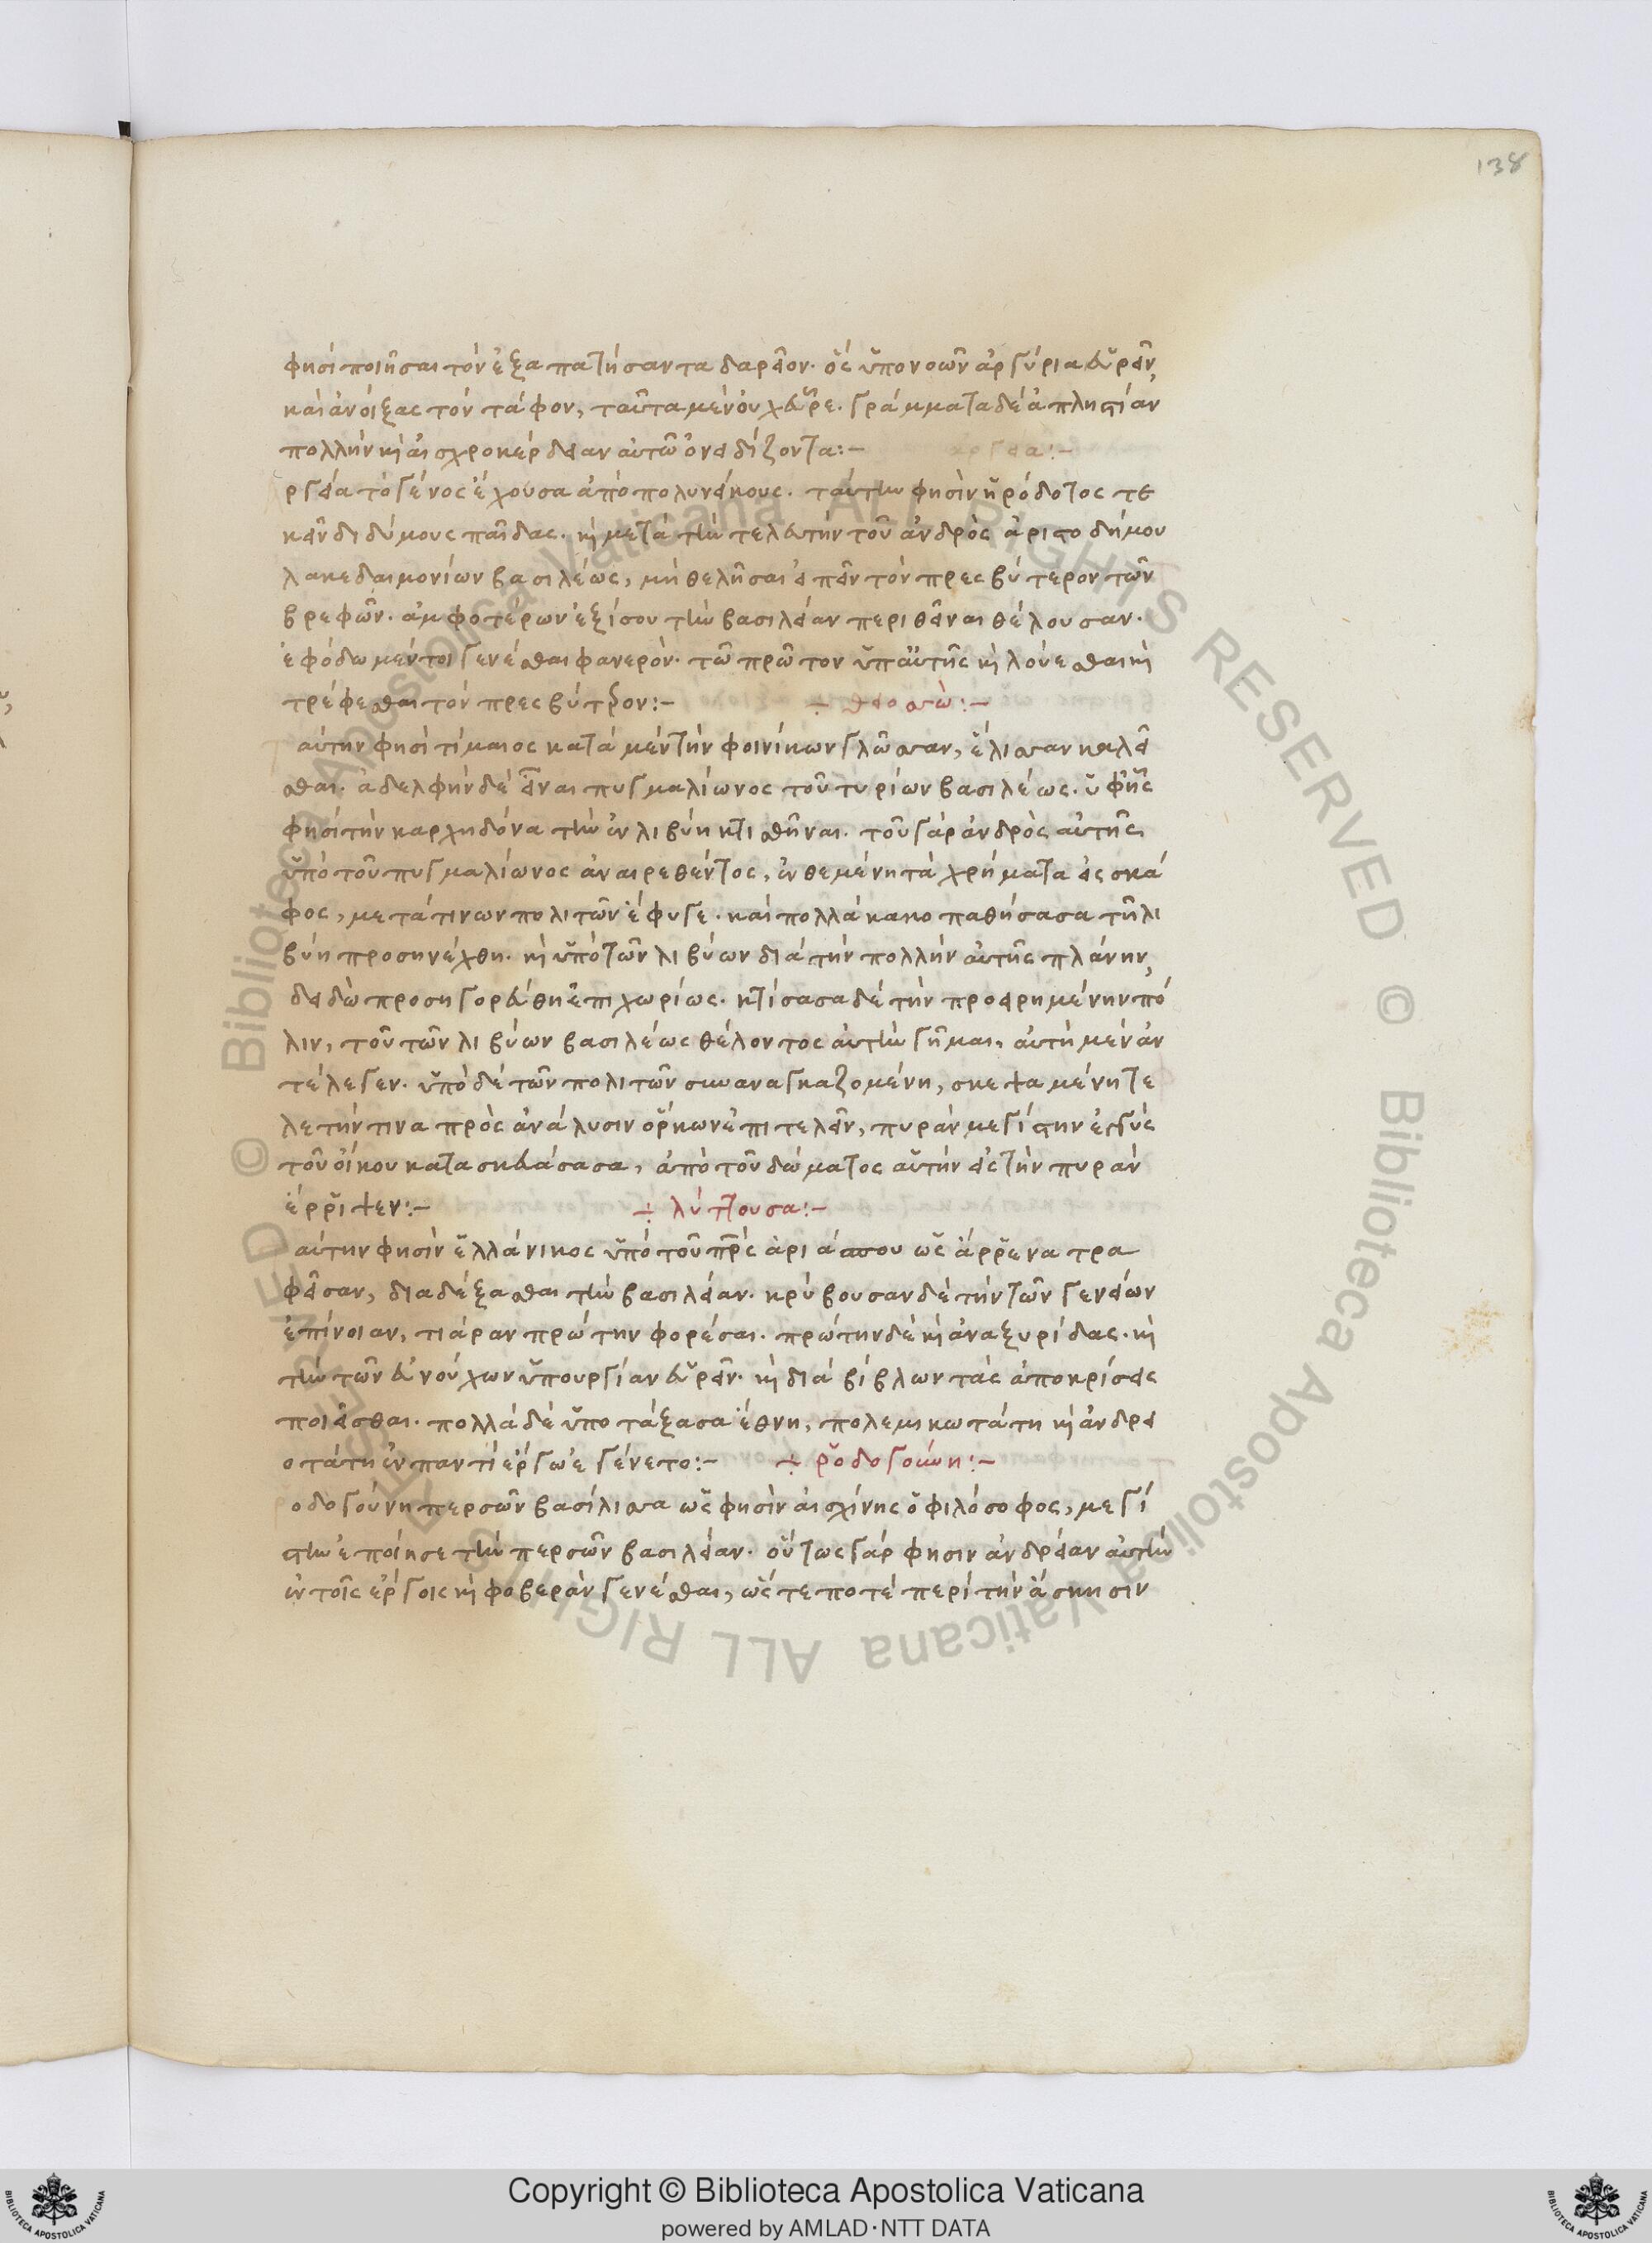 138
φησὶ ποιῆσαι τὸν ἐξαπατήσαντα δαρεῖον. ὃς ὑπονοῶν ἀργύρια εὑρεῖν,
καὶ ἀνοίξας τὸν τάφον, ταῦτα μὲν οὐχ εὗρε. γράμματα δὲ ἀπληστίαν
πολλὴν κὶ αἰσχροκέρδειαν αὐτῶ ὀνειδίζοντα:~ αργεία:~
ργεία τὸ γένος ἔχουσα ἀπὸ πολυνείκους. ταύτην φησὶν ἡρόδοτος τε
κεῖν διδύμους παῖδας. κὶ μετὰ τὴν τελευτὴν τοῦ ἀνδρὸς ἀριστοδήμου
λακεδαιμονίων βασιλέως, μὴ θελῆσαι εἰπεῖν τὸν πρεσβύτερον τῶν
βρεφῶν. ἀμφοτέρων ἐξίσου τὴν βασιλείαν περιθεῖναι θέλουσαν.
ἐφόδω μέντοι γενέσθαι φανερὸν. τῶ πρῶτον ὑπ' αὐτῆς κὶ λούεσθαι κὶ
τρέφεσθαι τὸν πρεσβύτερον:~ ÷ θειοσσὼ:~
αύτην φησὶ τίμαιος κατὰ μὲν τὴν φοινίκων γλῶσσαν, ἔλισσαν καλεῖ
σθαι. ἀδελφὴν δὲ εἶναι πυγμαλίωνος τοῦ τυρίων βασιλέως. ὑφ' ἧς
φησὶ τὴν καρχηδόνα τὴν ἐν λιβύη κτισθῆναι. τοῦ γὰρ ἀνδρὸς αὐτῆς
ὑπὸ τοῦ πυγμαλίωνος ἀναιρεθέντος, ἐνθεμένη τὰ χρήματα εἰς σκά
φος, μετά τινων πολιτῶν ἔφυγε. καὶ πολλὰ κακοπαθήσασα τῆ λι
βύη προσηνέχθη. κὶ ὑπὸ τῶν λιβύων διὰ τὴν πολλὴν αὐτῆς πλάνην,
δειδὼ προσηγορεύθη ἐπιχωρίως. κτίσασα δὲ τὴν προειρημένην πό
λιν, τοῦ τῶν λιβύων βασιλέως θέλοντος αὐτὴν γῆμαι, αὐτὴ μὲν ἀν
τέλεγεν. ὑπὸ δὲ τῶν πολιτῶν συναναγκαζομένη, σκεψαμένη τε
λετήν τινα πρὸς ἀνάλυσιν ὅρκων ἐπιτελεῖν, πυρὰν μεγίστην ἐγγὺς
τοῦ οἴκου κατασκευάσασα, ἀπὸ τοῦ δώματος αὑτὴν εἰς τὴν πυρὰν
ἔρριψεν:~ ÷ λύττουσα:~
αύτην φησὶν ἑλλάνικος ὑπὸ τοῦ πρς ἀριάσπου ὡς ἄρρενα τρα
φεῖσαν, διαδέξασθαι τὴν βασιλείαν. κρύβουσαν δὲ τὴν τῶν γενείων
ἐπίνοιαν, τιάραν πρώτην φορέσαι. πρώτην δὲ κὶ ἀναξυρίδας. κὶ
τὴν τῶν εὐνούχων ὑπουργίαν εὑρεῖν. κὶ διὰ βίβλων τὰς ἀποκρίσεις
ποιεῖσθαι. πολλὰ δὲ ὑποτάξασα ἔθνη, πολεμικωτάτη κὶ ἀνδρει
οτάτη ἐν παντὶ ἔργω ἐγένετο:~ ÷ ῥοδογούνη:~
οδογούνη περσῶν βασίλισσα ὥς φησὶν αἰσχίνης ὁ φιλόσοφος, μεγί
στην ἐποίησε τὴν περσῶν βασιλείαν. οὕτως γάρ φησιν ἀνδρείαν αὐτὴν
ἐν τοῖς ἔργοις κὶ φοβερὰν γενέσθαι, ὥς τε ποτὲ περὶ τὴν ἄσκησιν
Copyright © Biblioteca Apostolica Vaticana
powered by AMLAD·NTT DATA